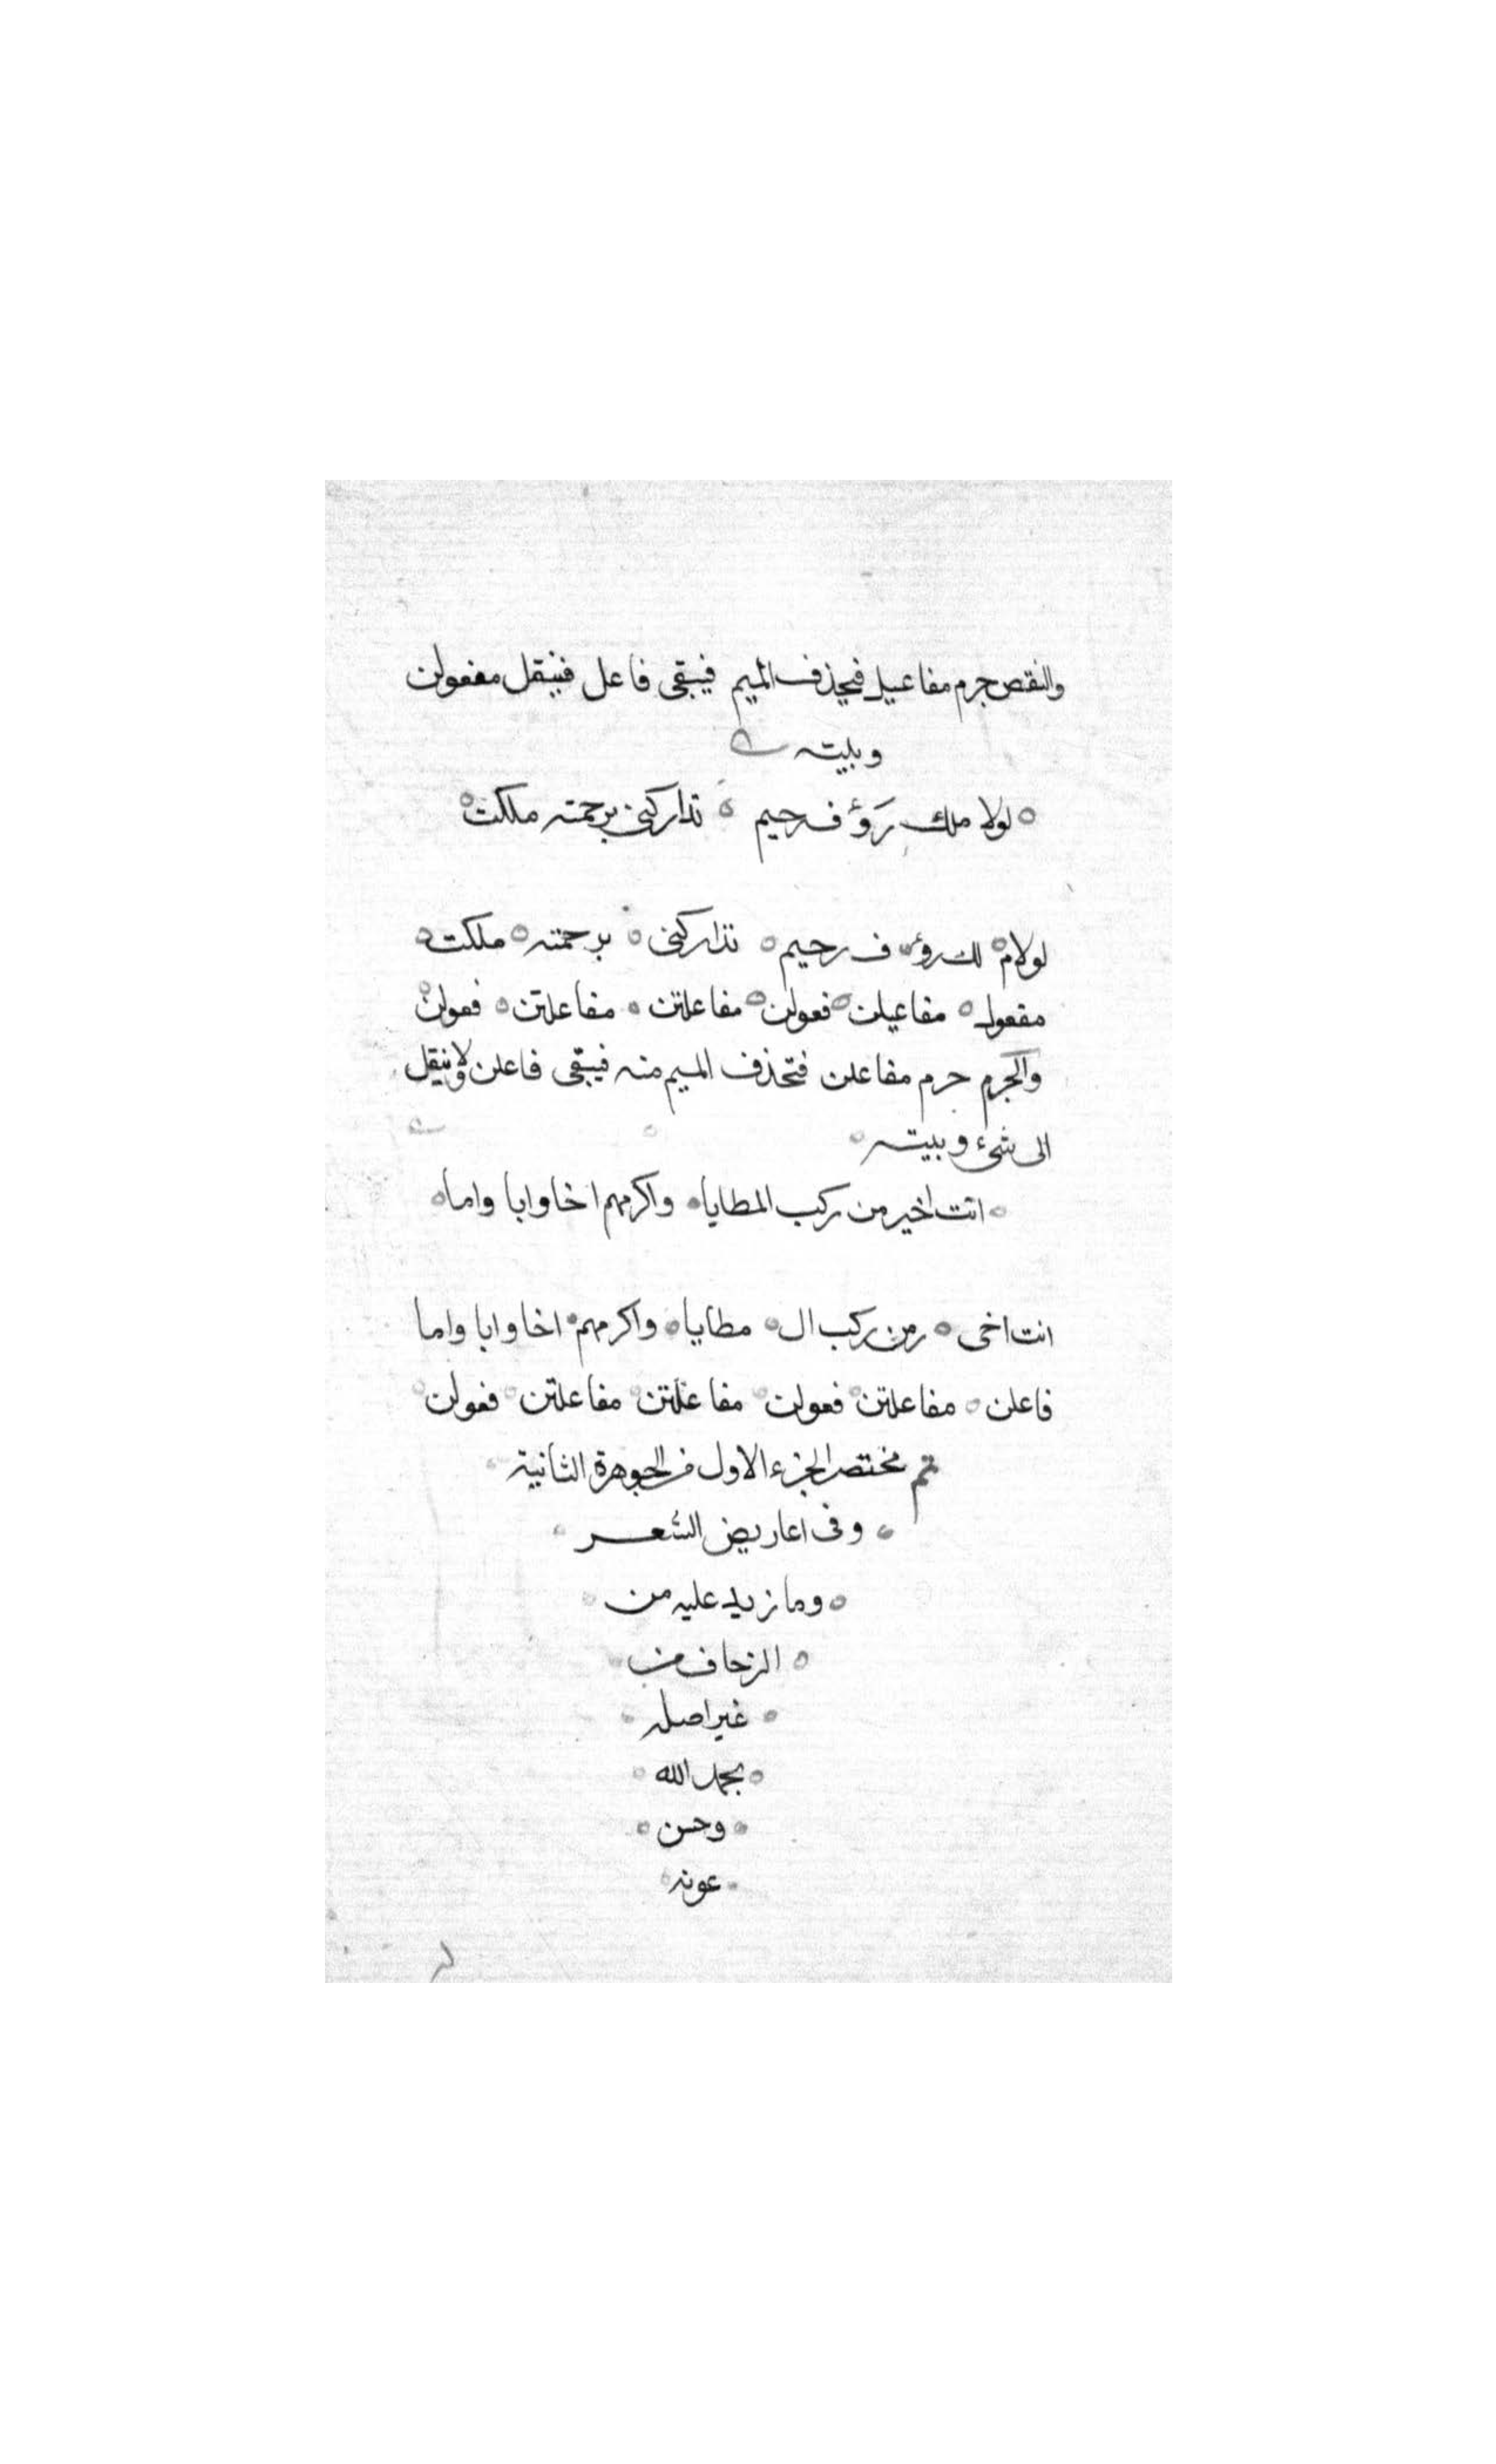 والنقص جرم مفاعيل فيحذف الميم فيبقى فاعل فينقل مفعولن
وبيته
لولا ملك رَؤُف رحيم ه تداركنى برحمته ملكت
لولام ه لك رؤ ه ف رحيم ه تداركنى ه برحمته ه ملكت ه
مفعول ه مفاعيلن ه فعولن ه مفاعلتن ه مفاعلتن ه فعولن ه
والجرم جرم مفاعلن فتحذف الميم منه فيبقى فاعلن ولا ينقل
الى شىء وبيته ه
ه انت اخير من ركب المطايا ه واكرمهم اخا وابا واما ه
انت اخى ه رمن ركب ال ه مطايا ه واكرمهم ه اخا وابا واما
فاعلن ه مفاعلتن ه فعولن ه مفاعلتن ه مفاعلتن ه فعولن ه
تم مختصر الجزء الاول من الجوهرة الثانية ه
ه وفى اعاريض الشعر ه
ه وما زيد عليه من ه
ه الزحاف من ه
ه غير اصله ه
ه بحمد الله ه
ه وحسن ه
ه عونه ه